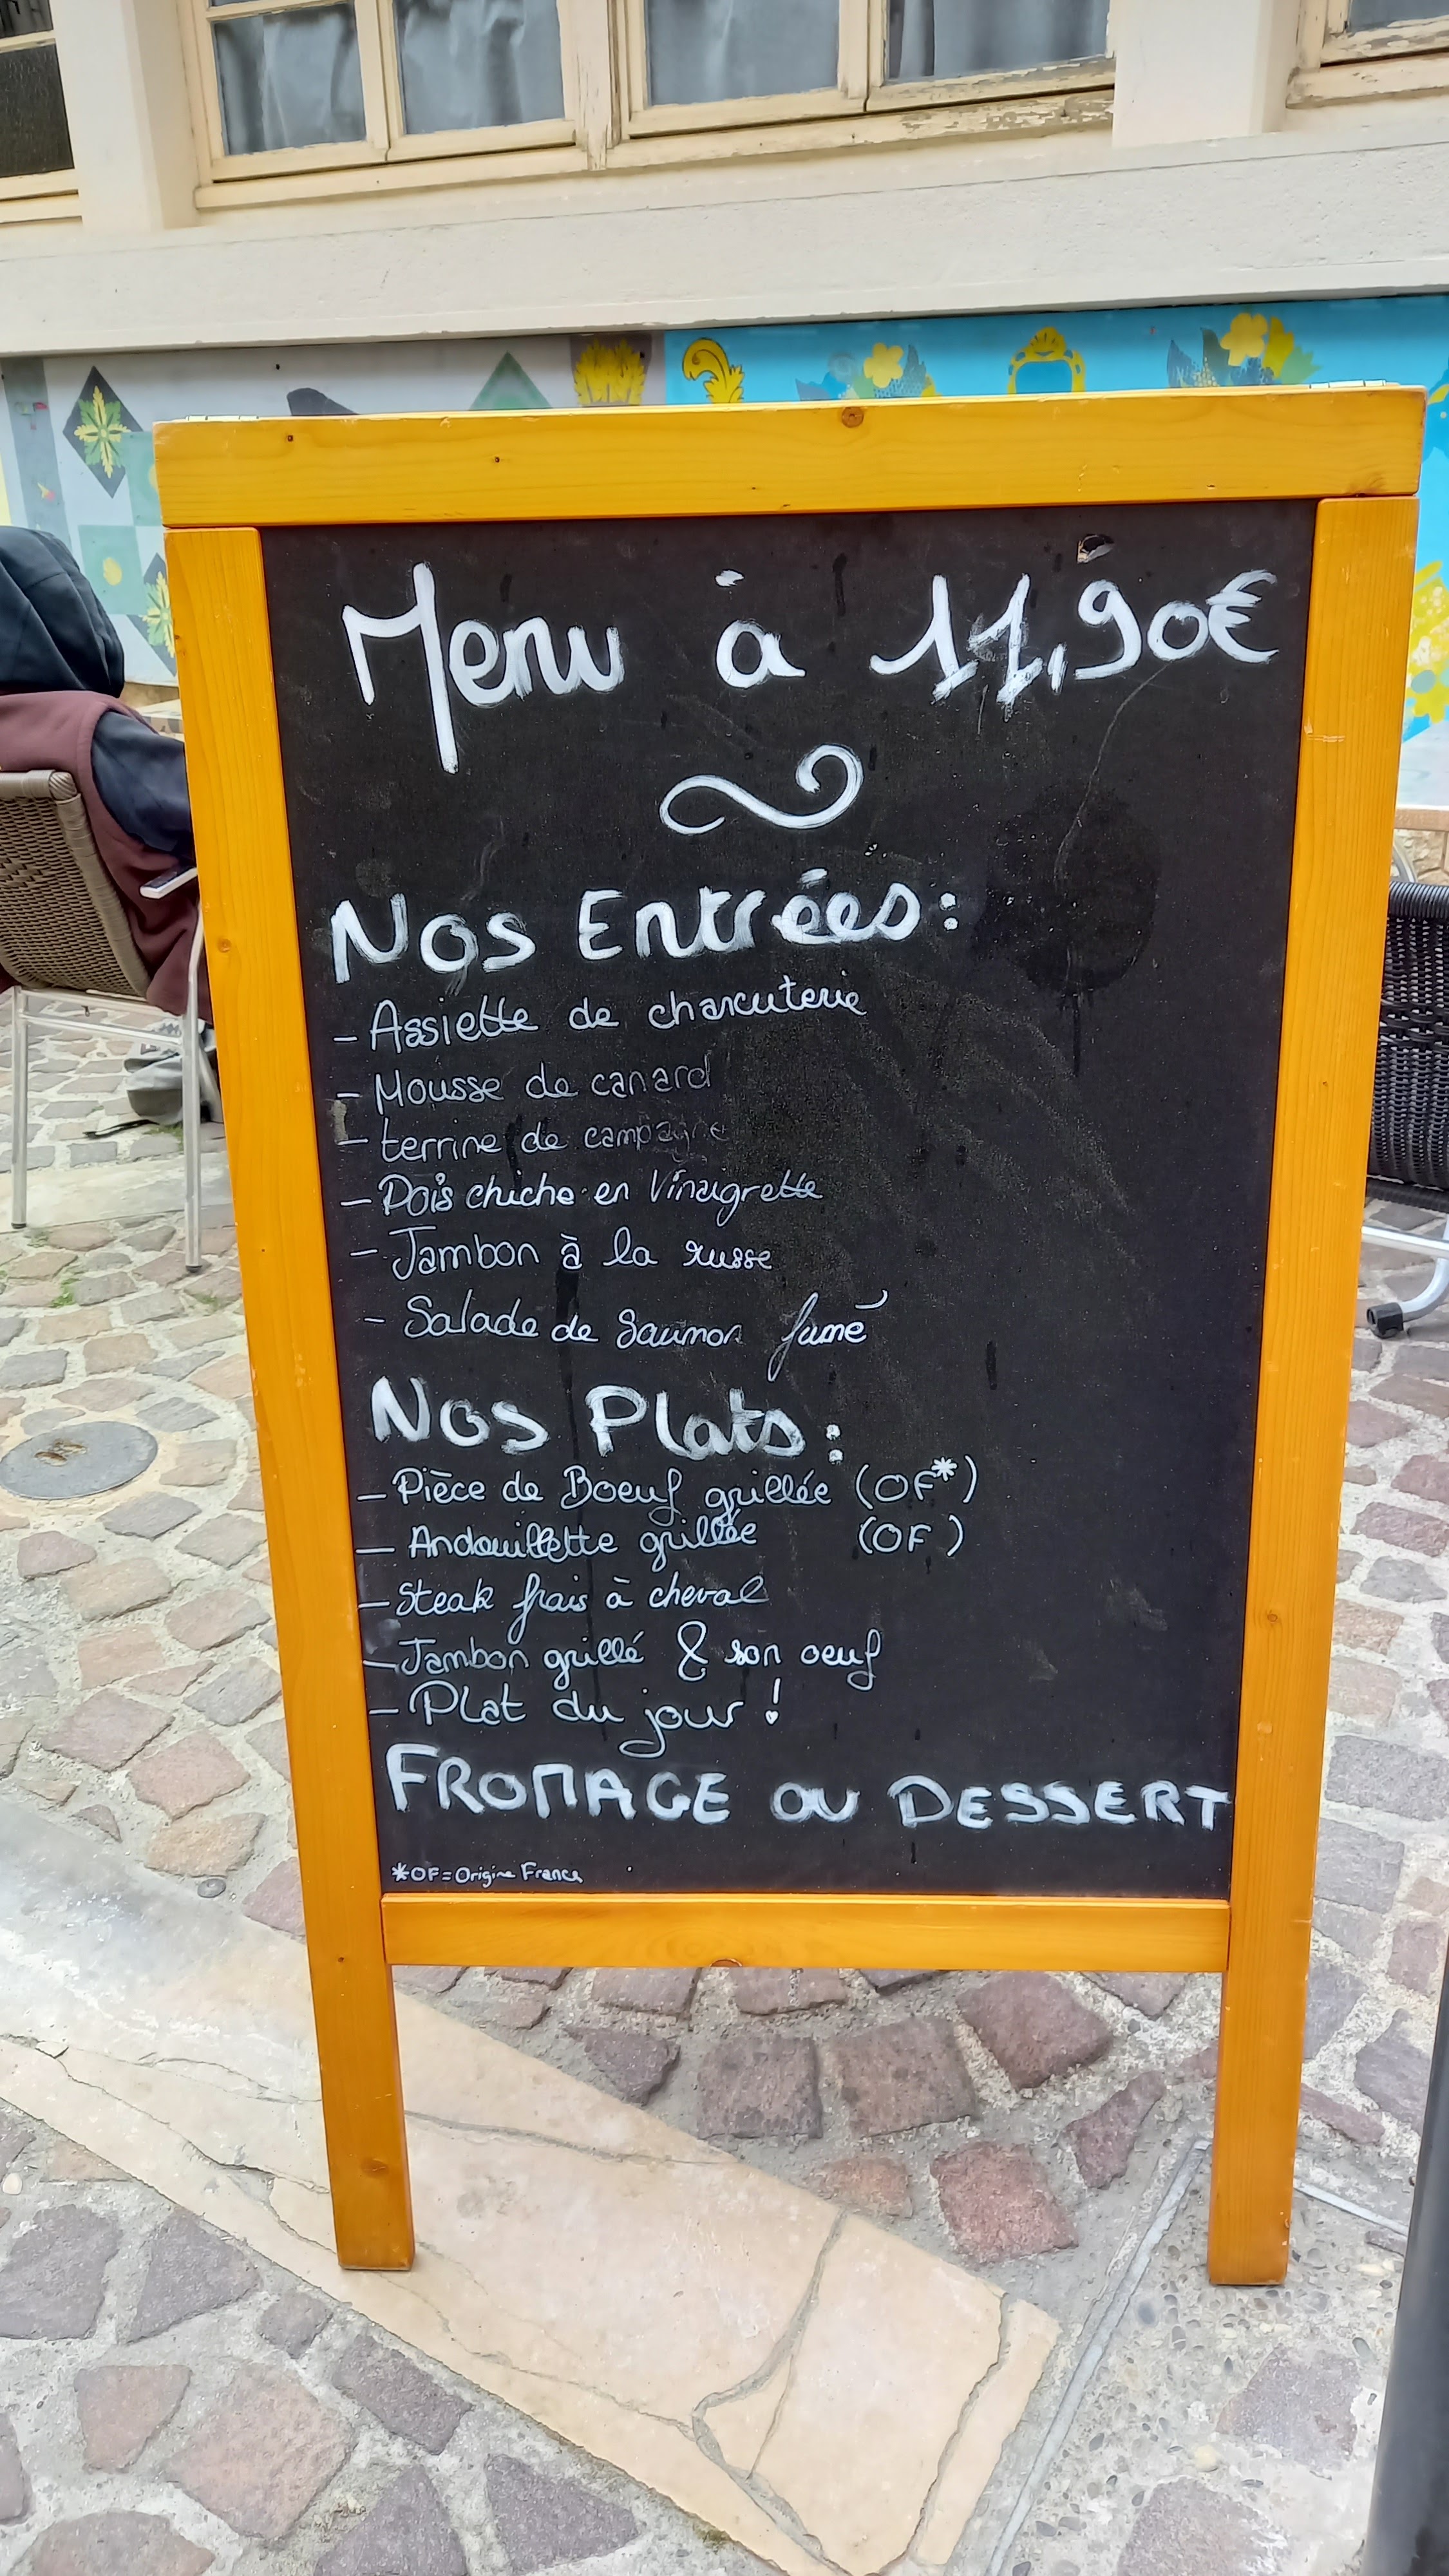 Menu à 11,90€
Nos Entrées:
- Assiette de charcuterie
- Mousse de canard
- terrine de campagne
- Pois chiche en Vinaigrette
- Jambon à la russe
- Salade de Saumon fumé
Nos Plats:
- Pièce de Boeuf grillée (OF*)
- Andouillette grillée (OF)
- Steak frais à cheval
- Jambon grillé & son oeuf
- Plat du jour !
FROMAGE OU DESSERT
*OF=Origine France